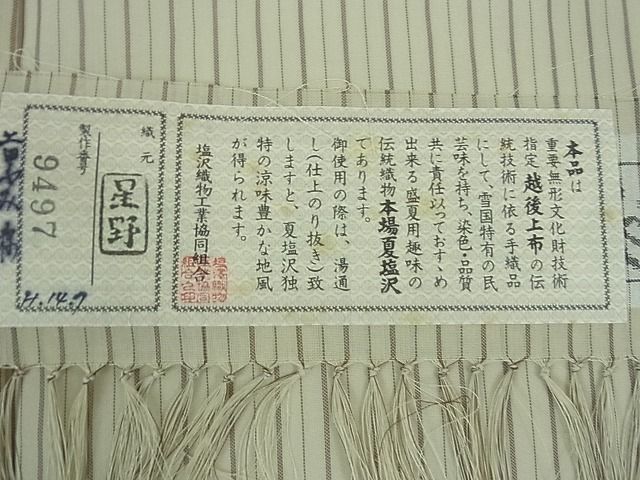 本品は
重要無形文化財技術
指定越後上布の伝
統技術に依る手織品
にして、雪国特有の民
芸味を持ち、染色・品質
共に責任以っておすゝめ
出来る盛夏用趣味の
伝統織物本場夏塩沢
であります。
御使用の際は、湯通
し(仕上のり抜き)致
しますと、夏塩沢独
特の涼味豊かな地風
が得られます。
塩沢織物工業協同組合
塩澤織物
織元
星野
製作番号
9497
H.14.7